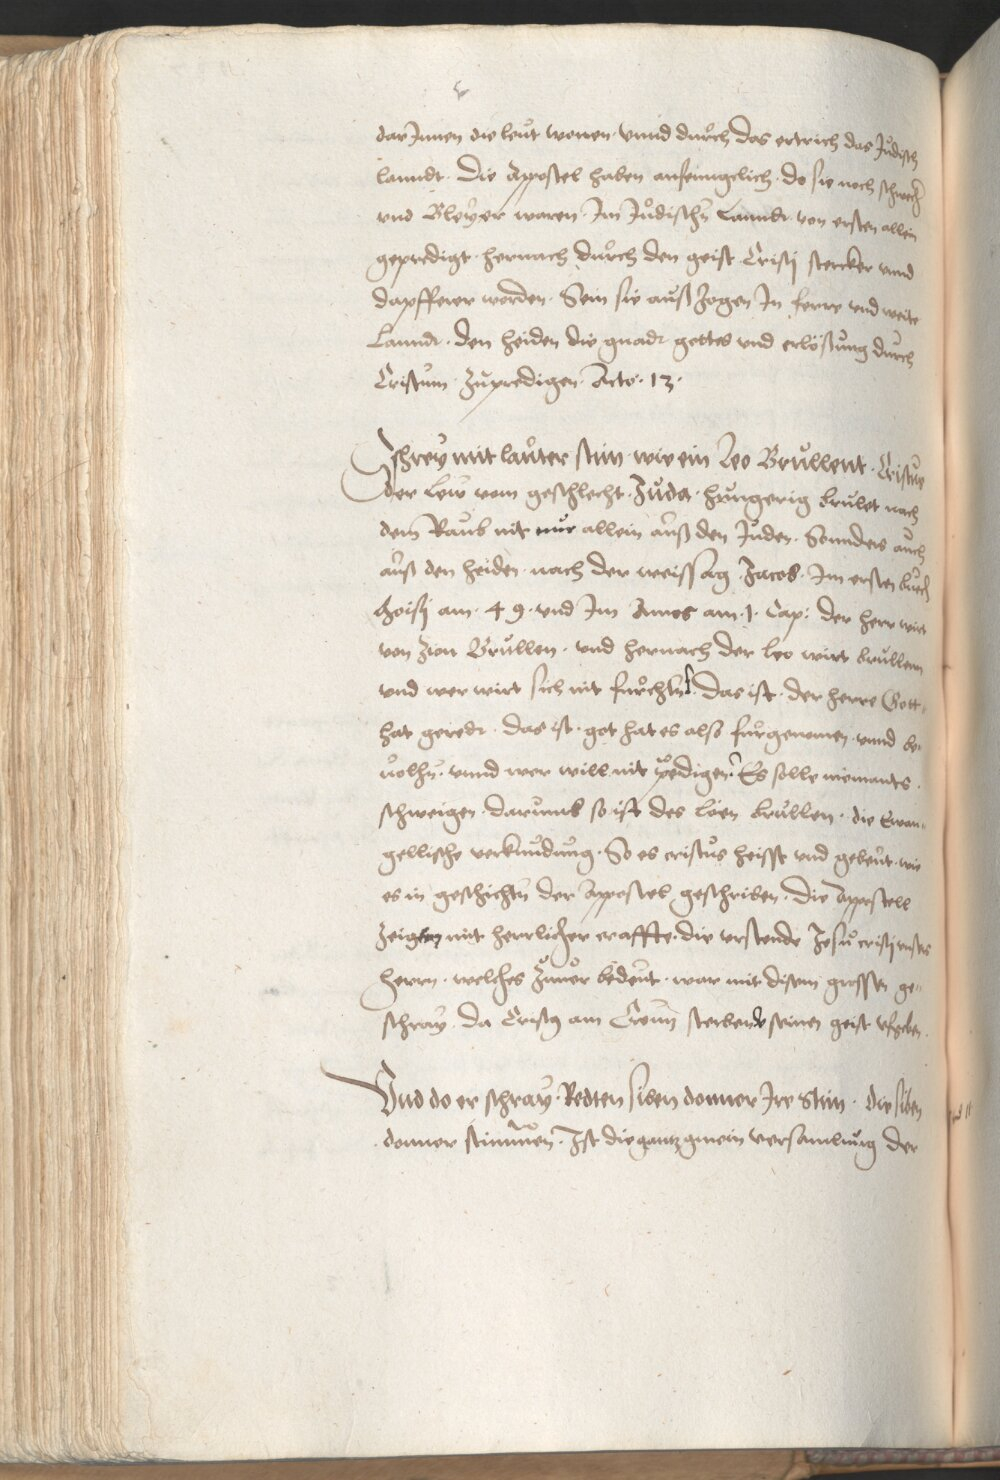 dar Jnnen die leut wonen · vnnd durch das ertrich das Judisch
lanndt · Die Appostel haben anfenngclich · do sie noch schwech
vnd Bleyer waren · Jm Judischn Lanndt von ersten allein
gepredigt · hernach durch den geist Cristj stercker vnnd
dapfferer worden · Sein sie auß zogen Jn ferre vnd weite
Lanndt · den heiden die gnadt gottes vnd erlößung durch
Cristum zupredigen · Acto · 13 ·
Schrey mit lauter stim wie ein leo Brullent · Cristus
der Lew vom geschlecht · Juda · hungerig brulet nach
dem Raub nit nur allein auß den Juden · Sonnders auch
auß den heiden · nach der weissag · Jacob · Jm ersten buch
Moisj am · 49 · vnd Jm Amos am · 1 · Cap: der herr wirt
von Zion Brullen · vnd hernach der leo wirt brullenn
vnd wer wirt sich nit furchtn · das ist · der herre Gott
hat geredt · das ist · got hat es also furgenomen · vnnd be-
uolhn · vnnd wer will nit predigen · Es solle niemants ·
schweigen · darumb so ist des löen brullen · die Ewan-
gellische verkundung · So es cristus heisst vnd gebeut · wie
es in geschichtn der Appostel geschriben · Die Appostell
zeigten mit herrlicher craffte · die vrstende Jesu cristj vnsers
herrn · welches zuuor bedeut · war mit disem grossen ge-
schray · da Cristus am Creutz sterbend seinen geist vfgeben ·
Vnd do er schray · Redten siben donner Jre stim · die siben
donner stimmen · Ist die gantz gmein versamlung der